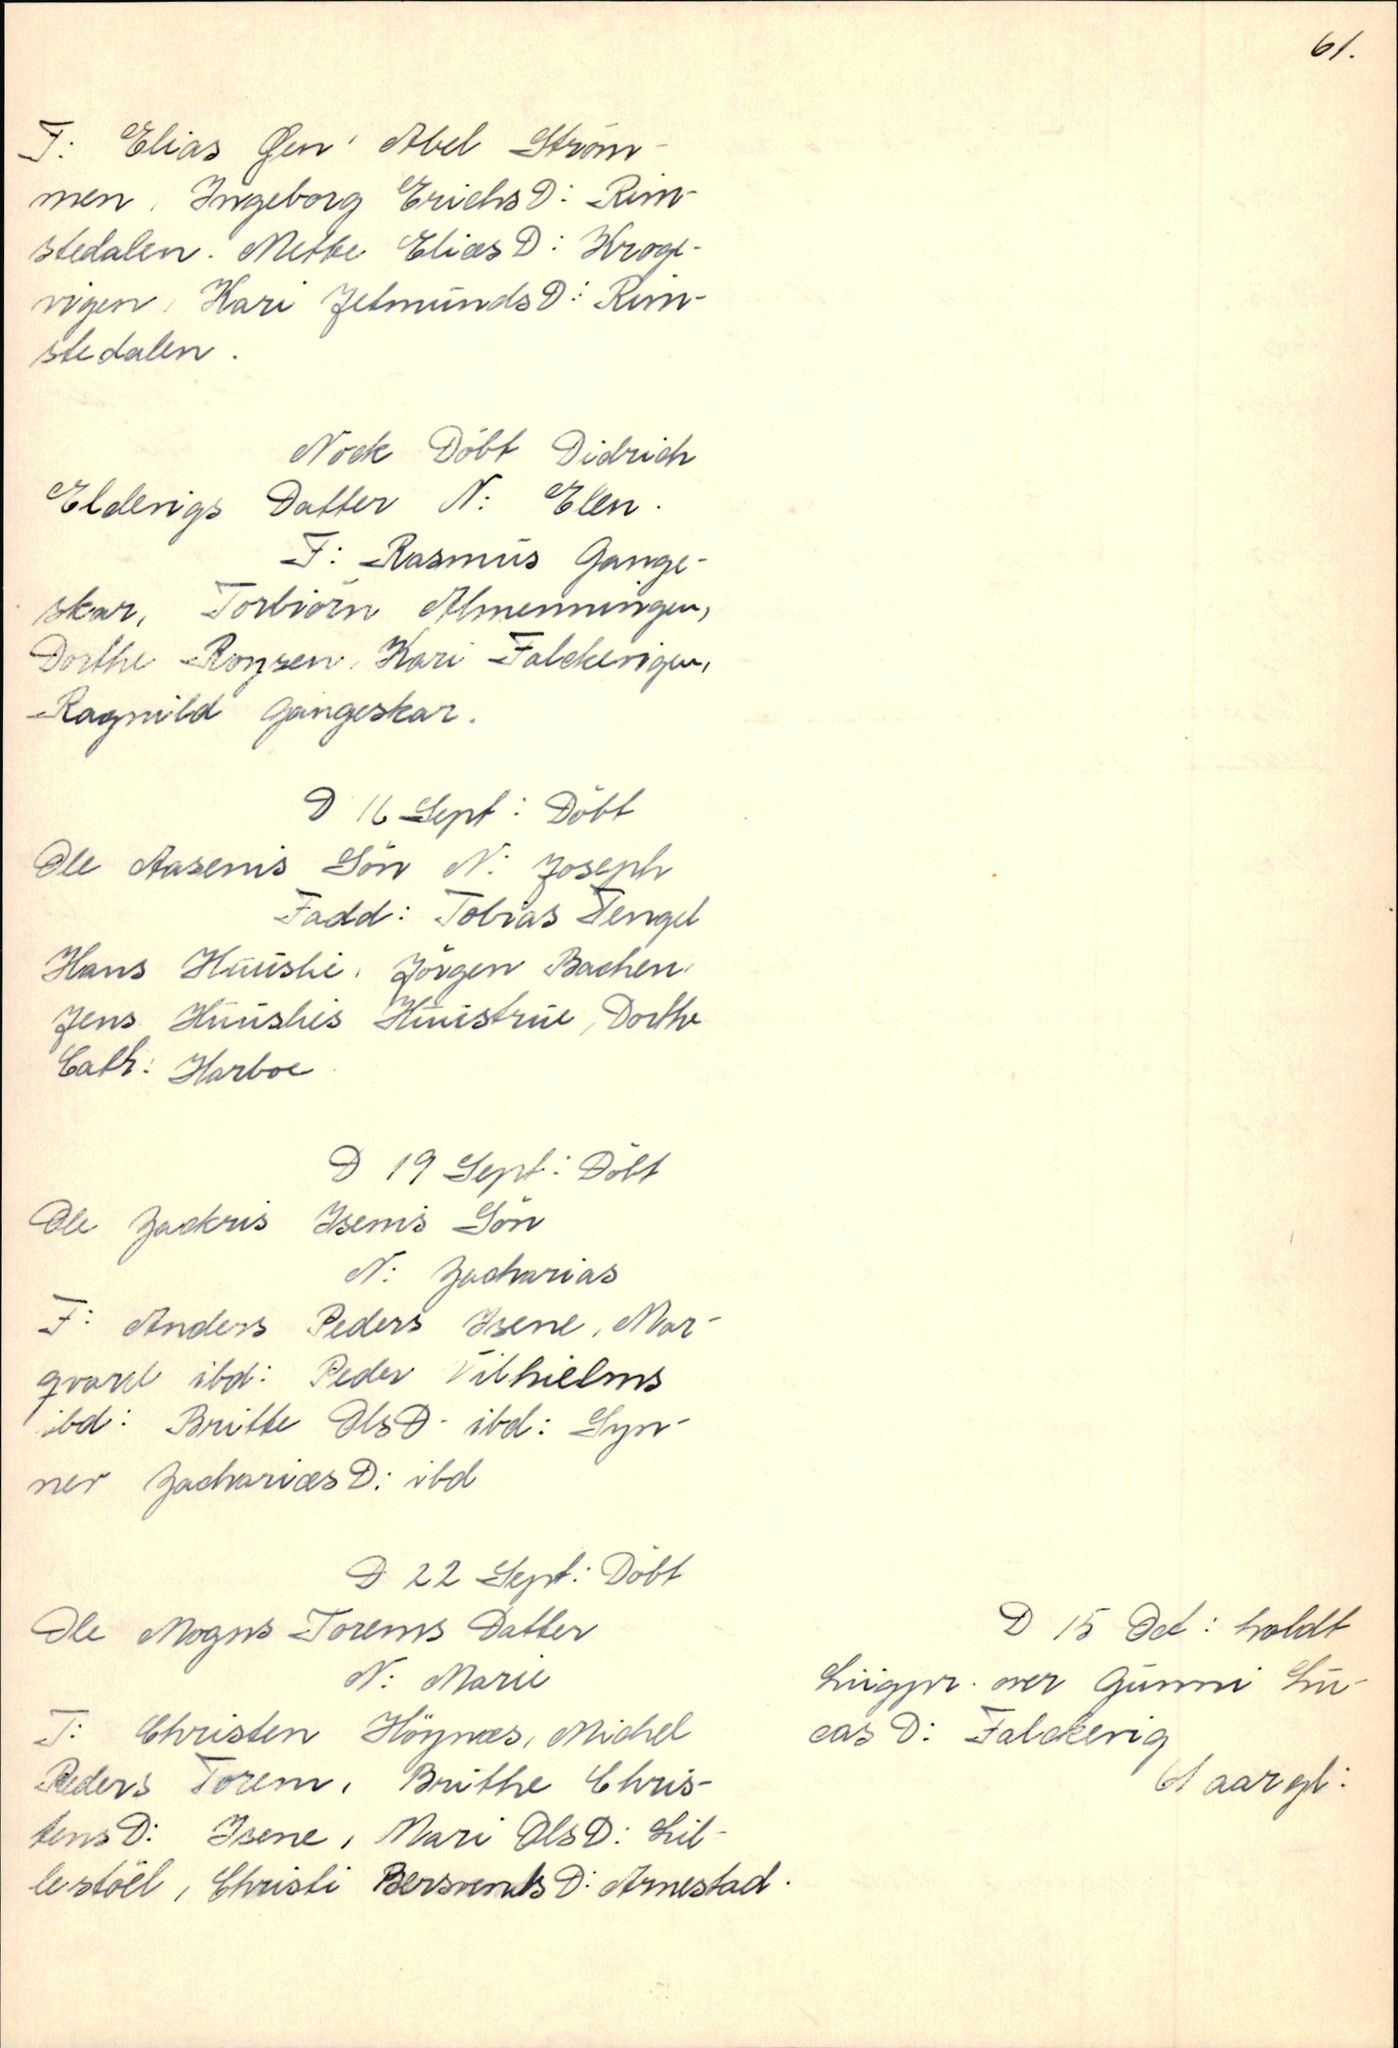 61.
F: Elias Øen, Abel Ström-
men, Ingeborg ErichsD: Rim-
stedalen. Mette EliæsD: Kroge-
vigen, Kari JetmundsD: Rim-
stedalen.
Nock Döbt Didrich
Eldevigs Datter N: Elen.
F: Rasmus Gange-
skar, Torbiörn Almenningen,
Dorthe Roysen, Kari Falckevigen,
Ragnild Gangeskar.
D 16 Sept: Döbt
Ole Aasens Sön N: Joseph
Fadd: Tobias Tengel
Hans Huushi, Jörgen Bachen,
Jens Huushis Huustrue, Dorthe
Cath: Harboe
D 19 Sept: Döbt
Ole Zackris Isens Sön
N: Zacharias
F: Anders Peders Isene, Mar-
qvard ibd: Peder Vilhielms
ibd: Britte OlsD- ibd: Syn-
nev ZachariæsD: ibd
D 22 Sept: Döbt
Ole Mogns Torems Datter
N: Marie
F: Christen Höynæs, Michel
Peders Torem, Brithe Chris-
tensD: Isene, Mari OlsD: Lil-
lestöel, Christi BersvendsD: Arnestad.
D 15 Oct: holdt
Liigpr. over Gunni Lu-
cas D: Falckevig
61 aar gl: